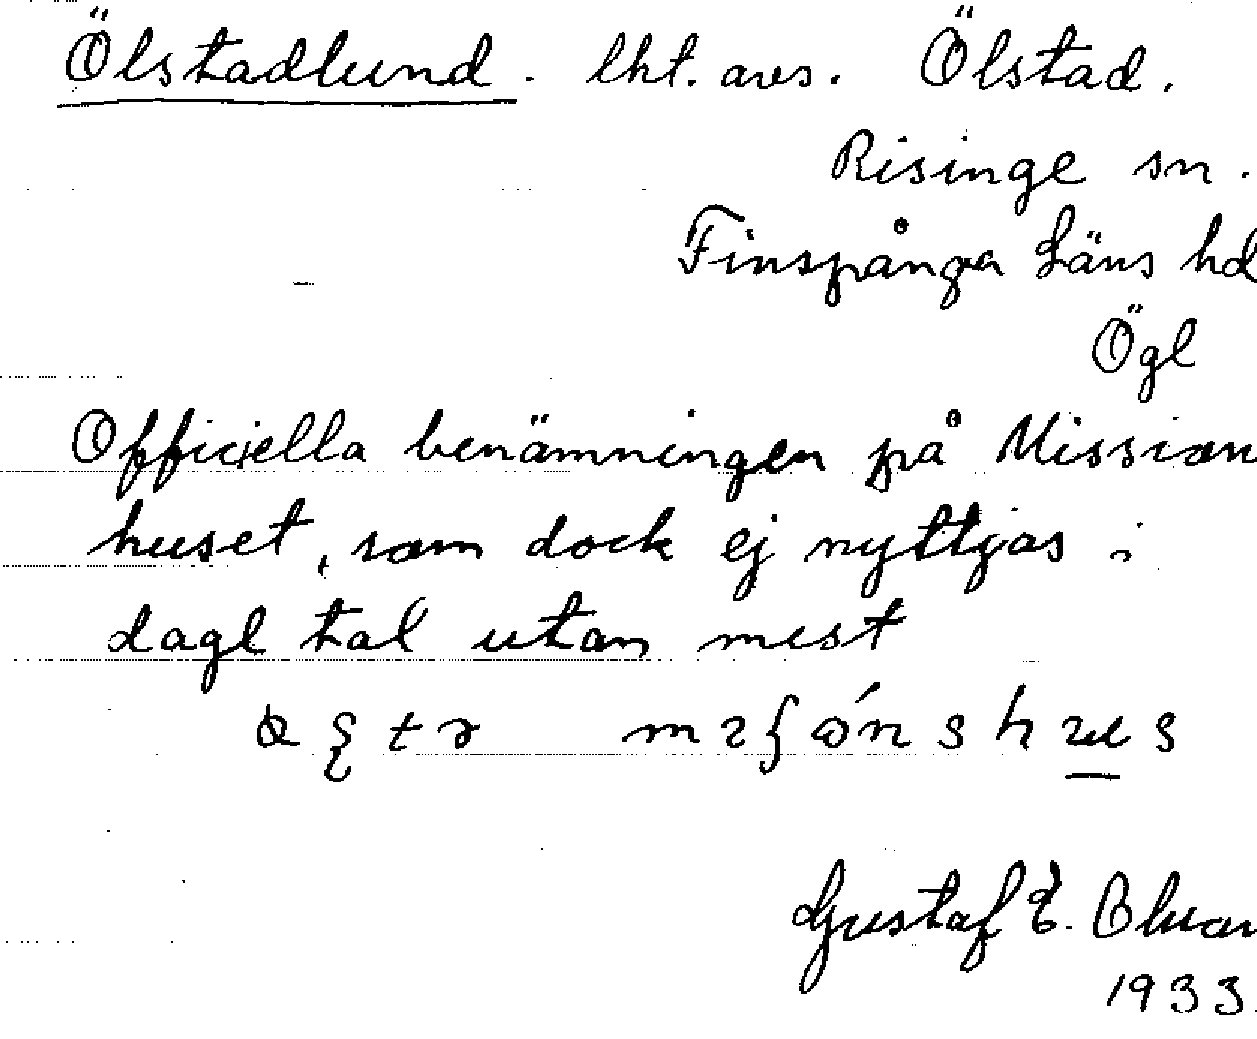 Ölstadlund. lht. avs. Ölstad.
Risinge sn.
Finspånga Läns hd
Ögl
Officiella benämningen på Mission
huset, som dock ej nyttjas i
dagl tal utan mest
Gustaf E.
1933.